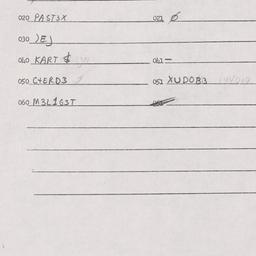 020 PAST3X 021 6
030 )EJ
040 KART $ 041 –
050 C4ERD3 051 XUDOB3
060 M3L1G3T